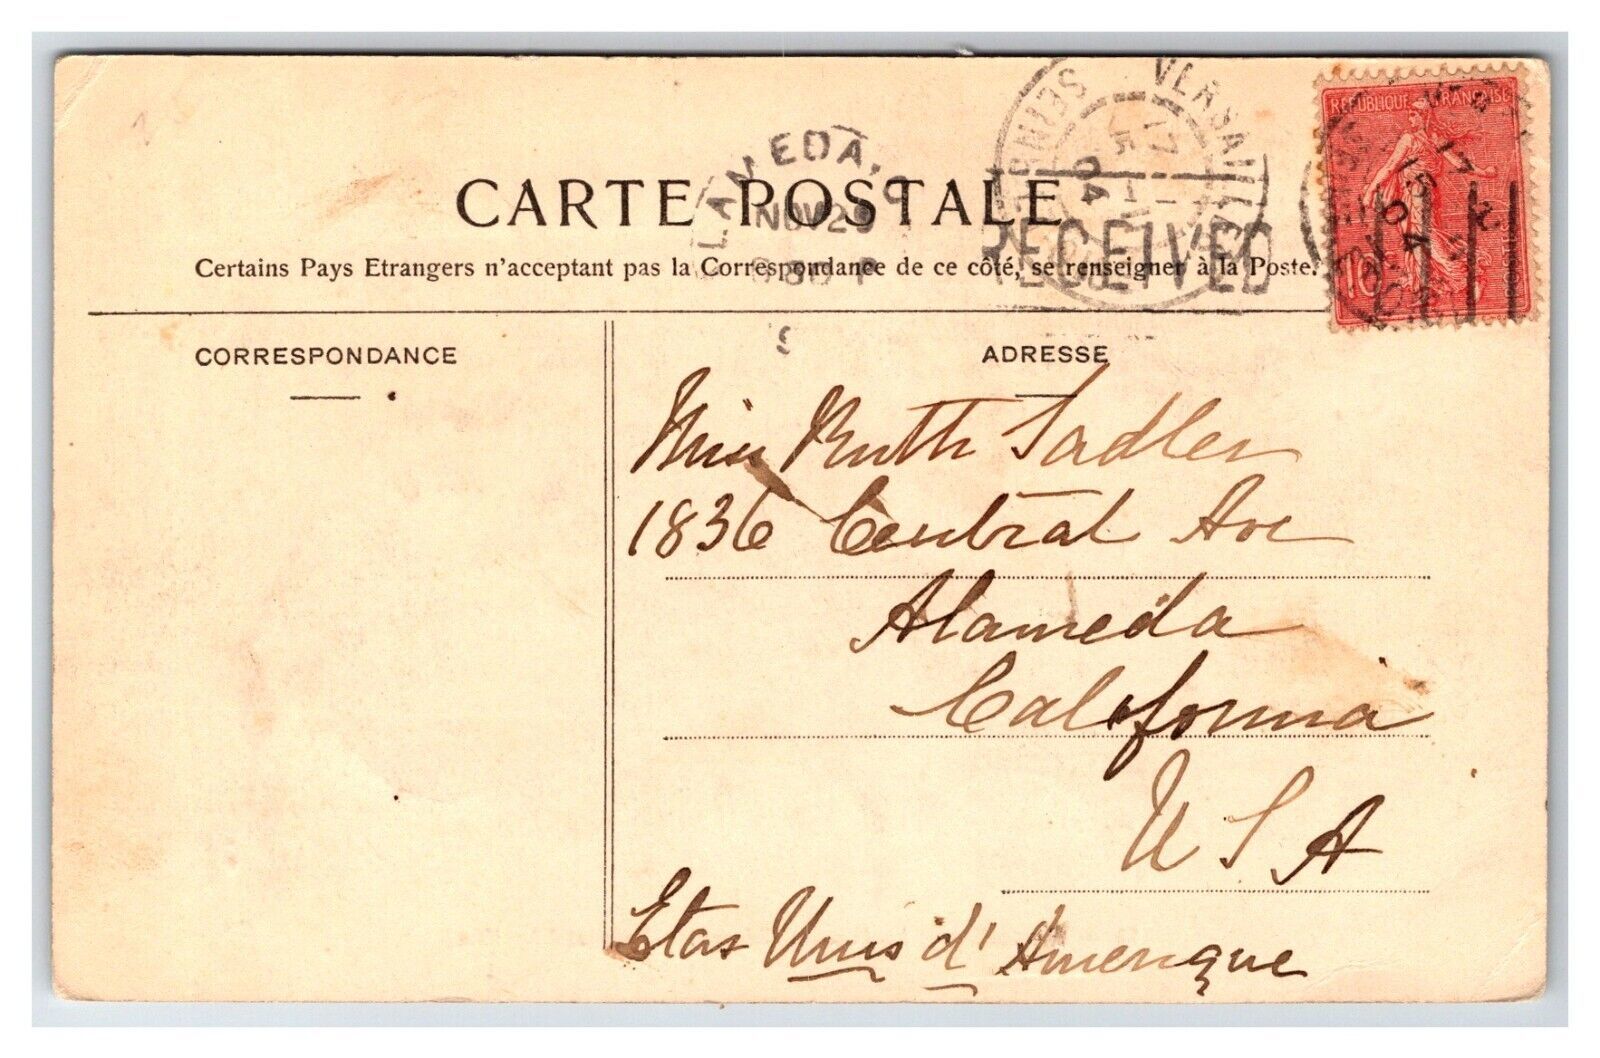 REPUBLIQUE FRANÇAISE
10
VERSAILLES
SEINE
17
15
04
ALAMEDA, C
NOV 29
8 30 P
RECEIVED
CARTE POSTALE
Certains Pays Etrangers n'acceptant pas la Correspondance de ce côté, se renseigner à la Poste.
CORRESPONDANCE
ADRESSE
Miss Ruth Sadler
1836 Central Ave
Alameda
California
U S A
Etas Unis d'Amerique